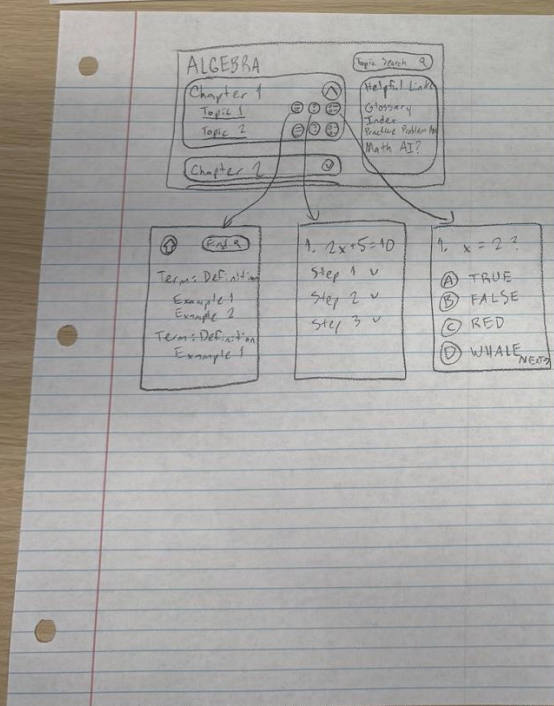 ALGEBRA
Topic Search
Chapter 1
Topic 1
Topic 2
Chapter 2
Helpful Links
Glossary
Index
Practice Problem
Math AI?
Find
Term: Definition
Example 1
Example 2
Term: Definition
Example 1
1. 2x+5=10
Step 1
Step 2
Step 3
1. x = 2?
A TRUE
B FALSE
C RED
D WHALE
NEXT>